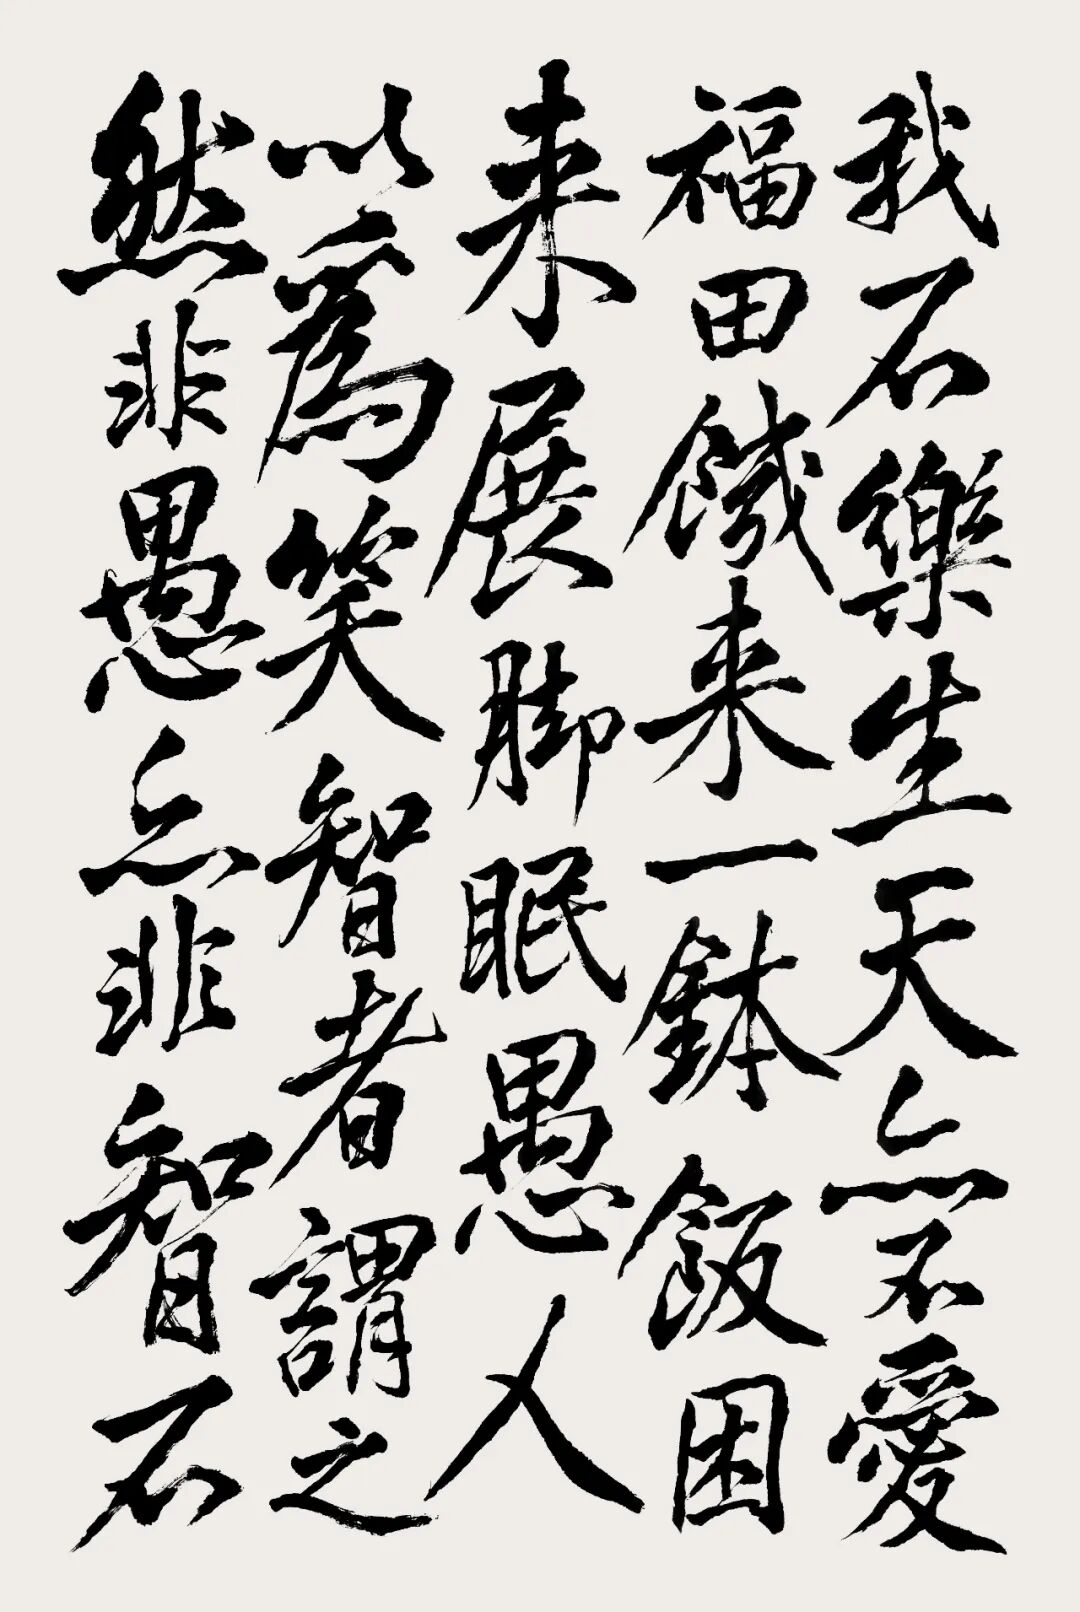 我不樂生天亦不愛
福田饑来一鉢飯困
来展脚眠愚人
以為笑智者謂之
然非愚亦非智不